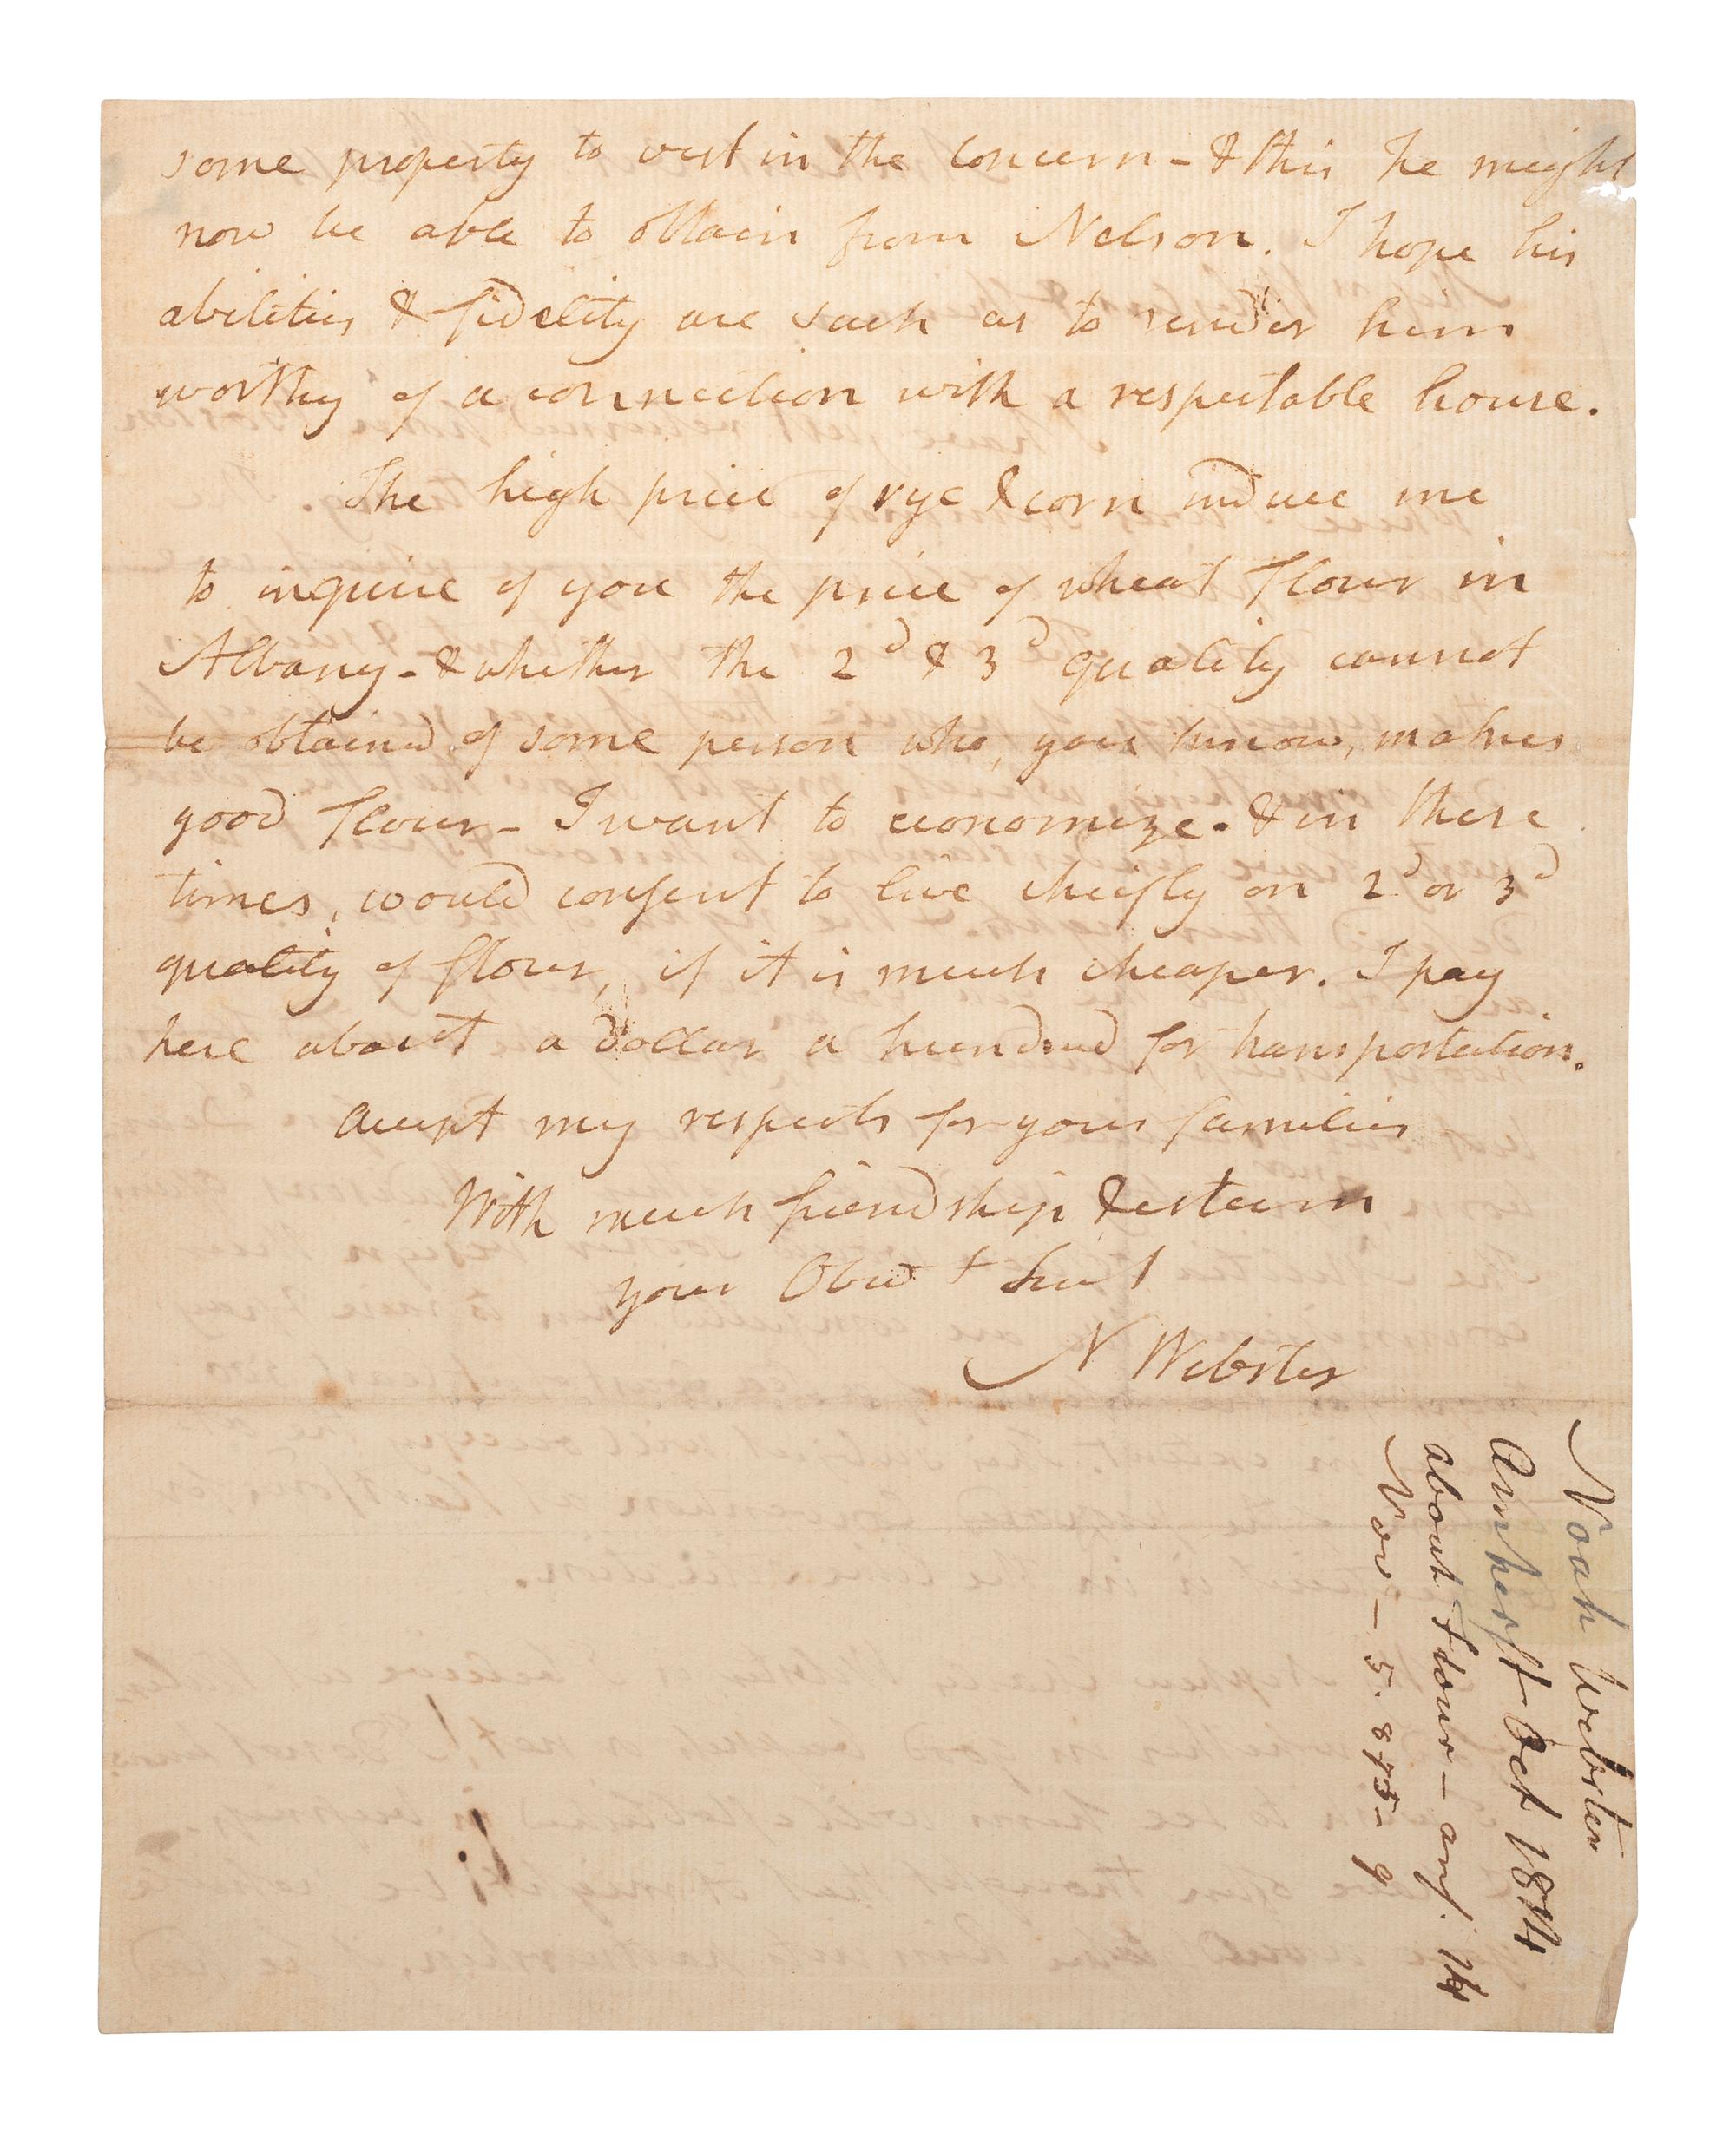 some property to vest in the concern - & this he might
now be able to obtain from Nelson. I hope his
abilities & fidelity are such as to render him
worthy of a connection with a respectable house.
The high price of rye & corn induce me
to inquire of you the price of wheat flour in
Albany - & whether the 2d & 3d quality cannot
be obtained of some person who, you know, makes
good flour - I want to economize - & in these
times, would consent to live cheifly on 2d or 3d
quality of flour, if it is much cheaper. I pay
here about a dollar a hundred for transportation.
Accept my respects for your families
With much friendship & esteem
your Obed t Serv t
N Webster
Noah Webster
Amherst Oct 1814
about Flour - ans. 14
Nov - 5.